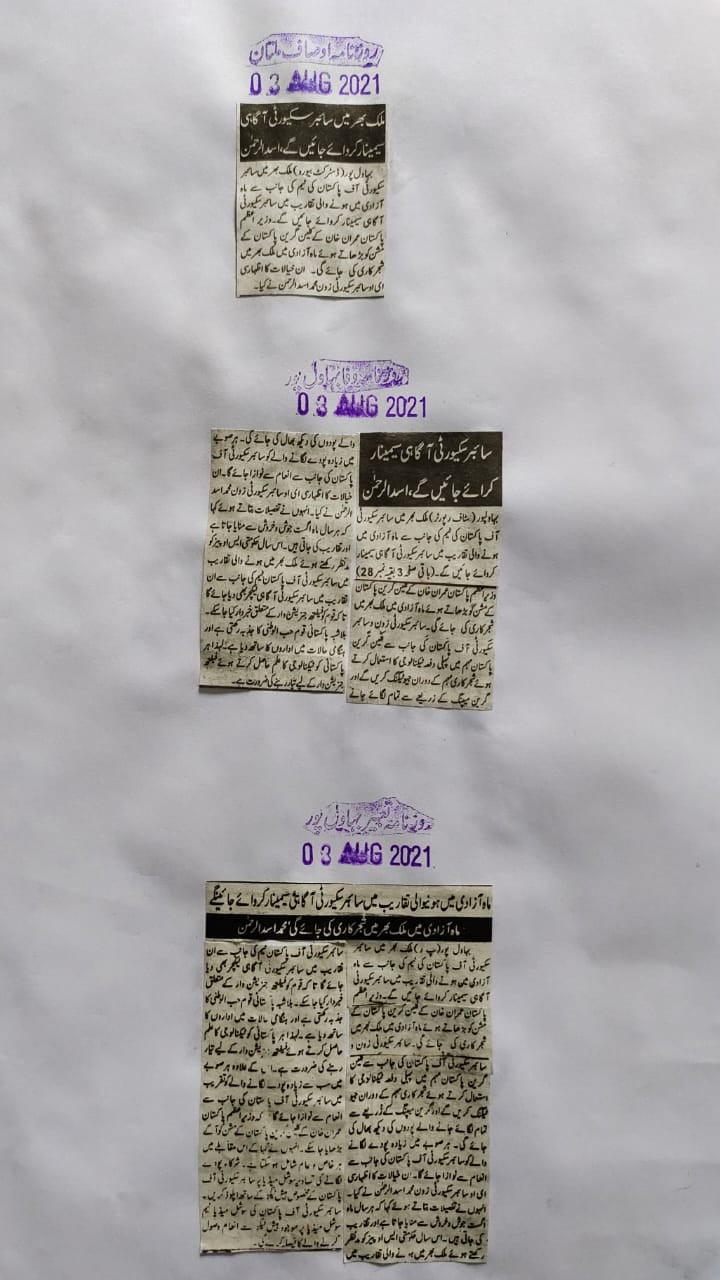 روزنامہ اوصاف ملتان
03 AUG 2021
ملک بھر میں سائبر سکیورٹی آگاہی
سیمینار کروائے جائیں گے، اسد الرحمٰن
بہاول پور (ڈسٹرکٹ بیورو) ملک بھر میں سائبر
سکیورٹی آف پاکستان کی ٹیم کی جانب سے ماہ
آزادی میں ہونے والی تقاریب میں سائبر سکیورٹی
آگاہی سیمینار کروائے جائیں گے۔ وزیر اعظم
پاکستان عمران خان کے کلین گرین پاکستان کے
مشن کو بڑھاتے ہوئے ماہ آزادی میں ملک بھر میں
شجر کاری کی جائے گی۔ ان خیالات کا اظہار سی
ای او سائبر سکیورٹی زون محمد اسد الرحمن نے کیا۔
روزنامہ وفا بہاول پور
03 AUG 2021
سائبر سکیورٹی آگاہی سیمینار
کرائے جائیں گے، اسد الرحمٰن
بہاولپور (سٹاف رپورٹر) ملک بھر میں سائبر سکیورٹی
آف پاکستان کی ٹیم کی جانب سے ماہ آزادی میں
ہونے والی تقاریب میں سائبر سکیورٹی آگاہی سیمینار
کروائے جائیں گے۔ (باقی صفحہ 3 بقیہ نمبر 28)
وزیر اعظم پاکستان عمران خان کے کلین گرین پاکستان
کے مشن کو بڑھاتے ہوئے ماہ آزادی میں ملک بھر میں
شجر کاری کی جائے گی۔ سائبر سکیورٹی زون و سائبر
سکیورٹی آف پاکستان کی جانب سے کلین گرین
پاکستان مہم میں پہلی دفعہ ٹیکنالوجی کا استعمال کرتے
ہوئے شجر کاری مہم کے دوران جیو ٹیگنگ کریں گے اور
گرین میپنگ کے ذریعے سے تمام لگائے جانے
والے پودوں کی دیکھ بھال کی جائے گی۔ ہر صوبے
میں زیادہ پودے لگانے والے کو سائبر سکیورٹی آف
پاکستان کی جانب سے انعام سے نوازا جائے گا۔ ان
خیالات کا اظہار سی ای او سائبر سکیورٹی زون محمد اسد
الرحمن نے کیا۔ انہوں نے تفصیلات بتاتے ہوئے کہا
کہ ہر سال ماہ اگست جوش و خروش سے منایا جاتا ہے
اور تقاریب کی جاتی ہیں۔ اس سال حکومتی ایس او پیز کو
مدنظر رکھتے ہوئے ملک بھر میں ہونے والی تقاریب
میں سائبر سکیورٹی آف پاکستان ٹیم کی جانب سے ان
تقاریب میں سائبر سکیورٹی آگاہی لیکچر بھی دیا جائے گا
تاکہ قوم کو ففتھ جنریشن وار کے متعلق خبردار کیا جا سکے۔
بلاشبہ پاکستانی قوم حب الوطنی کا جذبہ رکھتی ہے اور
ہنگامی حالات میں اداروں کا ساتھ دیا ہے۔ لہذا ہر
پاکستانی کو ٹیکنالوجی کا علم حاصل کرتے ہوئے ففتھ
جنریشن وار کے لیے تیار رہنے کی ضرورت ہے۔
روزنامہ تعمیر بہاول پور
03 AUG 2021
ماہ آزادی میں ہونیوالی تقاریب میں سائبر سکیورٹی آگاہی سیمینار کروائے جائینگے
ماہ آزادی میں ملک بھر میں شجر کاری کی جائے گی، محمد اسد الرحمٰن
بہاول پور (پ ر) ملک بھر میں سائبر
سکیورٹی آف پاکستان کی ٹیم کی جانب سے ماہ
آزادی میں ہونے والی تقاریب میں سائبر سکیورٹی
آگاہی سیمینار کروائے جائیں گے۔ وزیر اعظم
پاکستان عمران خان کے کلین گرین پاکستان کے
مشن کو بڑھاتے ہوئے ماہ آزادی میں ملک بھر میں
شجر کاری کی جائے گی۔ سائبر سکیورٹی زون و
سائبر سکیورٹی آف پاکستان کی جانب سے کلین
گرین پاکستان مہم میں پہلی دفعہ ٹیکنالوجی کا
استعمال کرتے ہوئے شجر کاری مہم کے دوران جیو
ٹیگنگ کریں گے اور گرین میپنگ کے ذریعے سے
تمام لگائے جانے والے پودوں کی دیکھ بھال کی
جائے گی۔ ہر صوبے میں زیادہ پودے لگانے
والے کو سائبر سکیورٹی آف پاکستان کی جانب سے
انعام سے نوازا جائے گا۔ ان خیالات کا اظہار سی
ای او سائبر سکیورٹی زون محمد اسد الرحمن نے کیا۔
انہوں نے تفصیلات بتاتے ہوئے کہا کہ ہر سال ماہ
اگست جوش و خروش سے منایا جاتا ہے اور تقاریب
کی جاتی ہیں۔ اس سال حکومتی ایس او پیز کو مدنظر
رکھتے ہوئے ملک بھر میں ہونے والی تقاریب میں
سائبر سکیورٹی آف پاکستان ٹیم کی جانب سے ان
تقاریب میں سائبر سکیورٹی آگاہی لیکچر بھی دیا
جائے گا تاکہ قوم کو ففتھ جنریشن وار کے متعلق
خبردار کیا جا سکے۔ بلاشبہ پاکستانی قوم حب الوطنی کا
جذبہ رکھتی ہے اور ہنگامی حالات میں اداروں کا
ساتھ دیا ہے۔ لہذا ہر پاکستانی کو ٹیکنالوجی کا علم
حاصل کرتے ہوئے ففتھ جنریشن وار کے لیے تیار
رہنے کی ضرورت ہے۔ اس کے علاوہ ہر صوبے
میں سب سے زیادہ پودے لگانے والے کو تقریب
میں سائبر سکیورٹی آف پاکستان کی جانب سے
انعام سے نوازا جائے گا کہ وزیر اعظم پاکستان
عمران خان کے کلین گرین پاکستان کے مشن کو آگے
بڑھایا جا سکے۔ انہوں نے کہا کے اس مقابلے میں
ہر خاص و عام شامل ہو سکتا ہے۔ شرکاء پودے
لگانے کی تصاویر سوشل میڈیا پر سائبر سکیورٹی آف
پاکستان کے مخصوص ہیش ٹیگز کے ساتھ اپلوڈ کریں۔
سائبر سکیورٹی آف پاکستان کی سوشل میڈیا ٹیم
سوشل میڈیا پر موجود ہیش ٹیگز سے انعام وصول
کرنے والے کا فیصلہ کرے گی۔